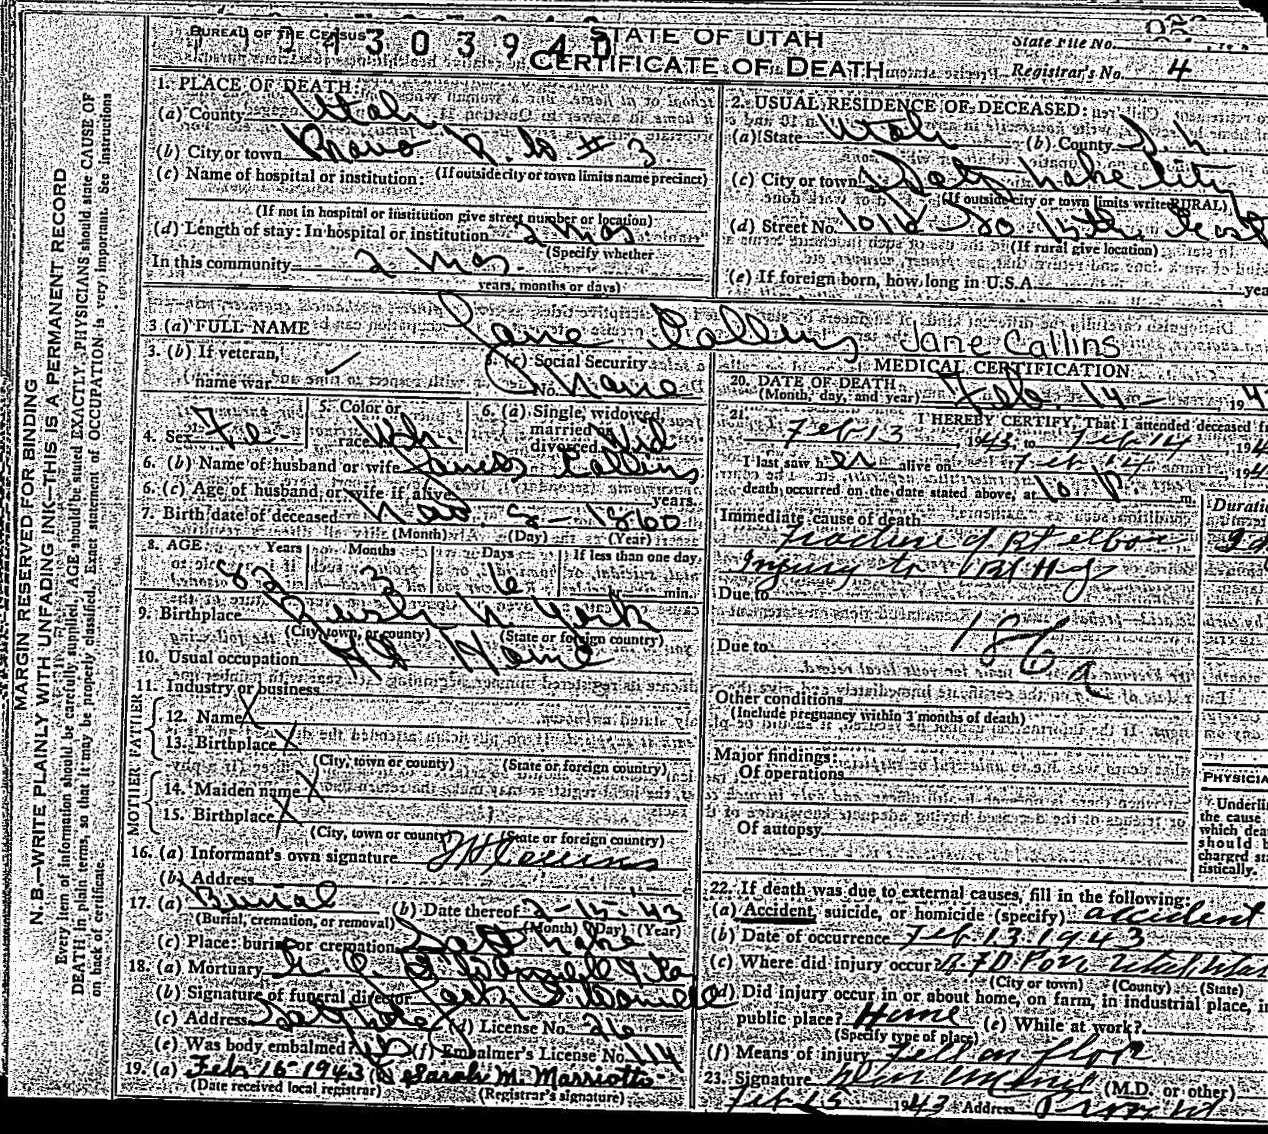 BUREAU OF THE CENSUS
303940
STATE OF UTAH
CERTIFICATE OF DEATH
State File No.
Registrar's No. 4
MARGIN RESERVED FOR BINDING
N. B.—WRITE PLAINLY WITH UNFADING INK—THIS IS A PERMANENT RECORD
Every item of information should be carefully supplied. AGE should be stated EXACTLY. PHYSICIANS should state CAUSE OF
DEATH in plain terms, so that it may be properly classified. Exact statement of OCCUPATION is very important. See instructions
on back of certificate.
1. PLACE OF DEATH:
(a) County Utah
(b) City or town Provo R. #3
(If outside city or town limits name precinct)
(c) Name of hospital or institution:
(If not in hospital or institution give street number or location)
(d) Length of stay: In hospital or institution 2 mos.
(Specify whether
In this community 2 mos.
years, months or days)
2. USUAL RESIDENCE OF DECEASED:
(a) State Utah (b) County S. L.
(c) City or town Salt Lake City
(If outside city or town limits write RURAL)
(d) Street No. So
(If rural give location)
(e) If foreign born, how long in U.S.A. yea
3 (a) FULL NAME Jane Callins Jane Callins
3. (b) If veteran,
name war
3. (c) Social Security
No. None
4. Sex Fe-
5. Color or
race Wh.
6. (a) Single, widowed,
married or
divorced Wid
6. (b) Name of husband or wife James Callins
6. (c) Age of husband or wife if alive years
7. Birth date of deceased Nov. 8-1860
(Month) (Day) (Year)
8. AGE Years Months Days If less than one day
82 3 6 min.
9. Birthplace N. York
(City, town, or county) (State or foreign country)
10. Usual occupation At Home
11. Industry or business
FATHER
12. Name X
13. Birthplace X
(City, town or county) (State or foreign country)
MOTHER
14. Maiden name X
15. Birthplace X
(City, town or county) (State or foreign country)
16. (a) Informant's own signature Collins
(b) Address
17. (a) Burial (b) Date thereof 2-15-43
(Burial, cremation, or removal) (Month) (Day) (Year)
(c) Place: burial or cremation Salt Lake
18. (a) Mortuary
(b) Signature of funeral director
(c) Address Salt Lake (d) License No. 26
(e) Was body embalmed? Yes (f) Embalmer's License No. 114
19. (a) Feb 15-1943 (b) Sarah M. Marriotte
(Date received local registrar) (Registrar's signature)
MEDICAL CERTIFICATION
20. DATE OF DEATH
(Month, day, and year) Feb. 14- , 194
21. I HEREBY CERTIFY, That I attended deceased fr
Feb 13 1943 to Feb 14 , 194
I last saw her alive on Feb 14 194
death occurred on the date stated above, at 10 P. m.
Duratio
Immediate cause of death
Fracture of Rt elbow
Injury to Rt Hip
Due to
Due to 186a
Other conditions
(Include pregnancy within 3 months of death)
Major findings:
Of operations
Of autopsy
PHYSICIA
Underlin
the cause
which dea
should b
charged sta
tistically.
22. If death was due to external causes, fill in the following:
(a) Accident, suicide, or homicide (specify) accident
(b) Date of occurrence Feb 13 1943
(c) Where did injury occur? Utah
(City or town) (County) (State)
(d) Did injury occur in or about home, on farm, in industrial place, in
public place? Home (e) While at work?
(Specify type of place)
(f) Means of injury Fell on floor
23. Signature (M.D. or other)
Feb 15 1943 Address